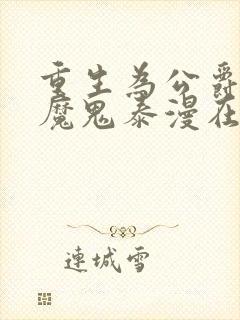 重生為公爵
魔鬼泰漫在
連城雪